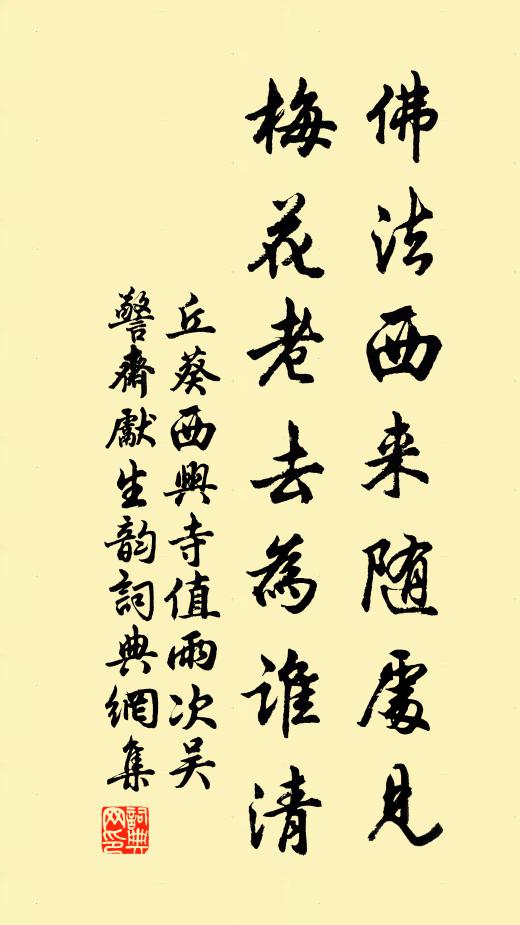 佛法西来随處見
梅花老去為誰清
丘葵西興寺值雨次吴
警齋獻生韵詞典網集
詞典網印